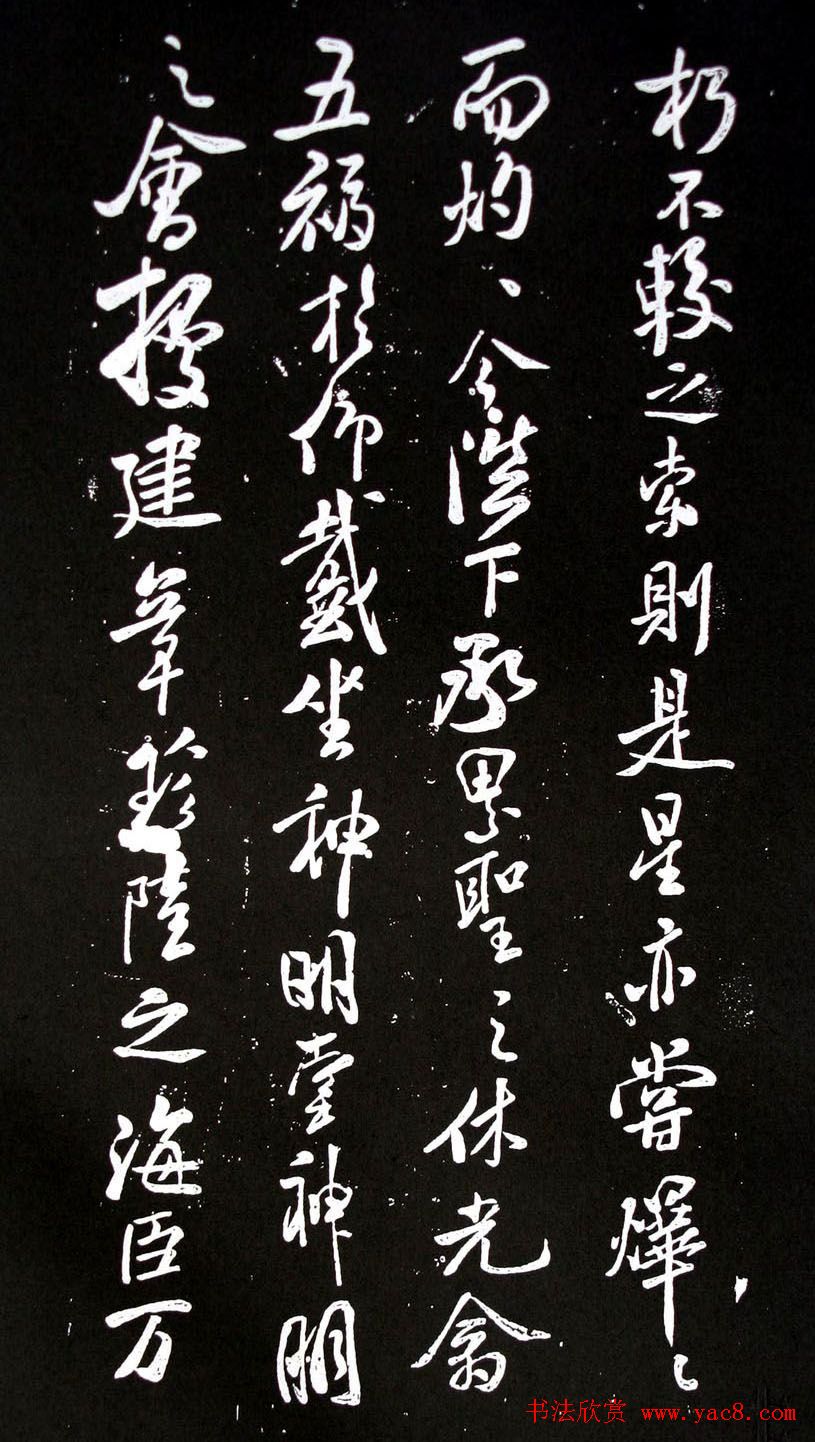 朽不較之索則是星亦嘗爗〻
而灼、今陛下承累聖之休光翕
五福於仰戴坐神明堂神明
之會授建章
陸之海臣万
书法欣赏 www.yac8.com